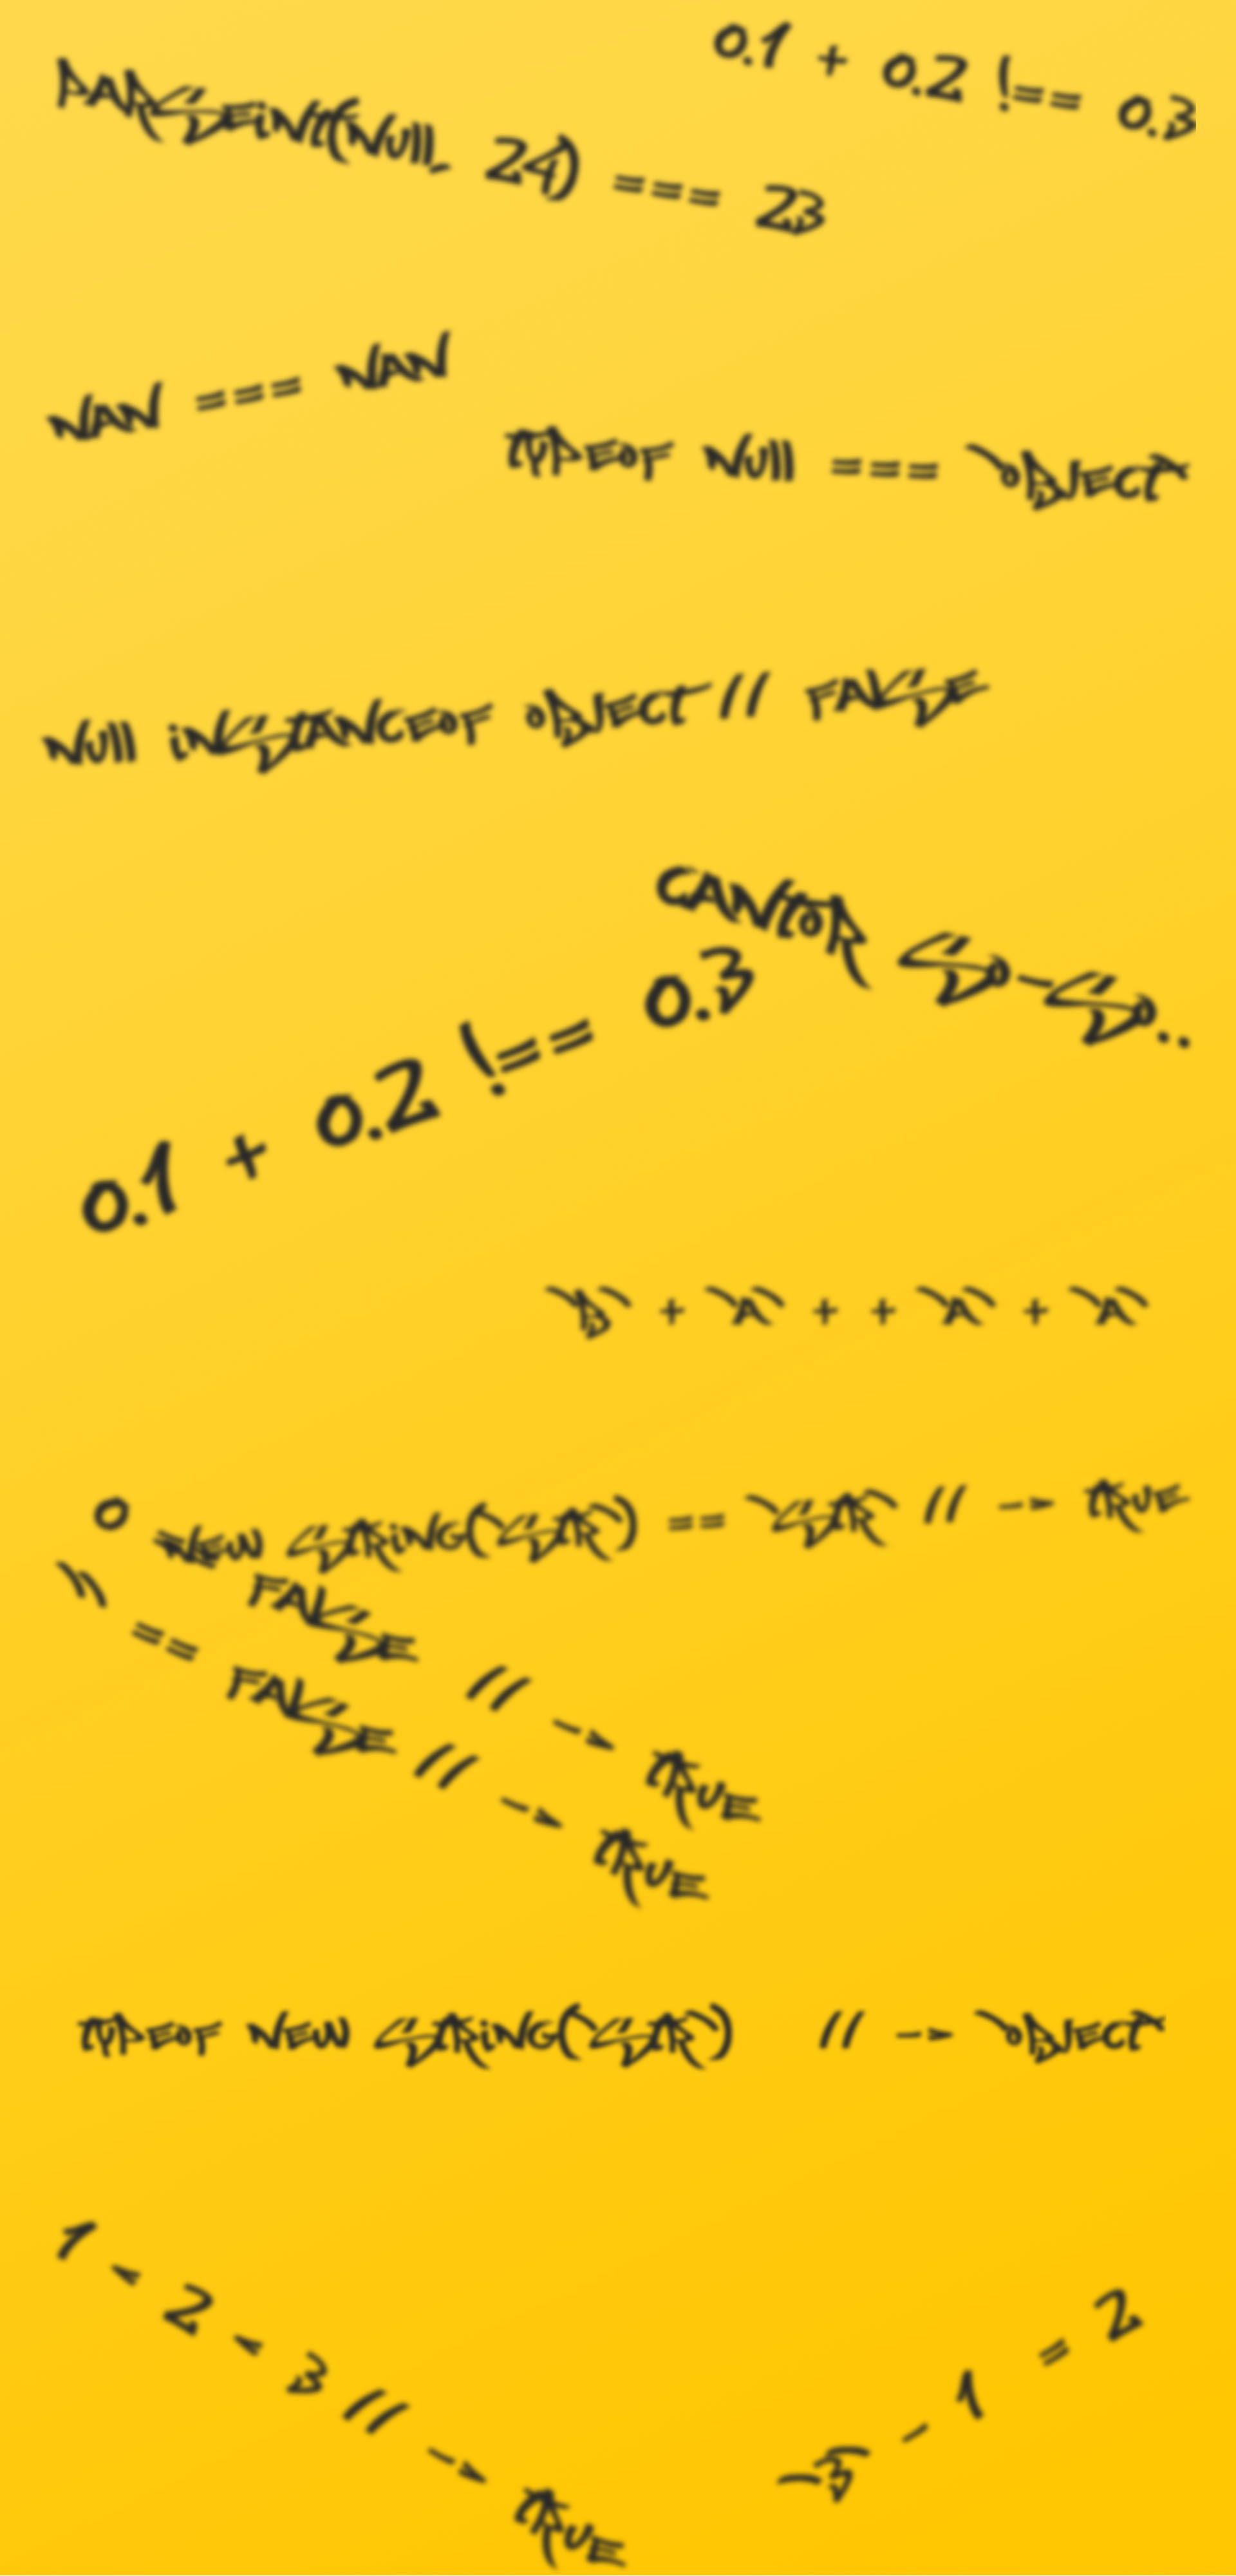 0.1 + 0.2 !== 0.3
parseInt(null, 24) === 23
NaN === NaN
typeof null === 'object'
null instanceof Object // false
cantor so-so..
0.1 + 0.2 !== 0.3
'b' + 'a' + + 'a' + 'a'
new String('str') == 'str' // -> true
0 == false // -> true
'' == false // -> true
typeof new String('str') // -> 'object'
1 < 2 < 3 // -> true
'3' - 1 = 2